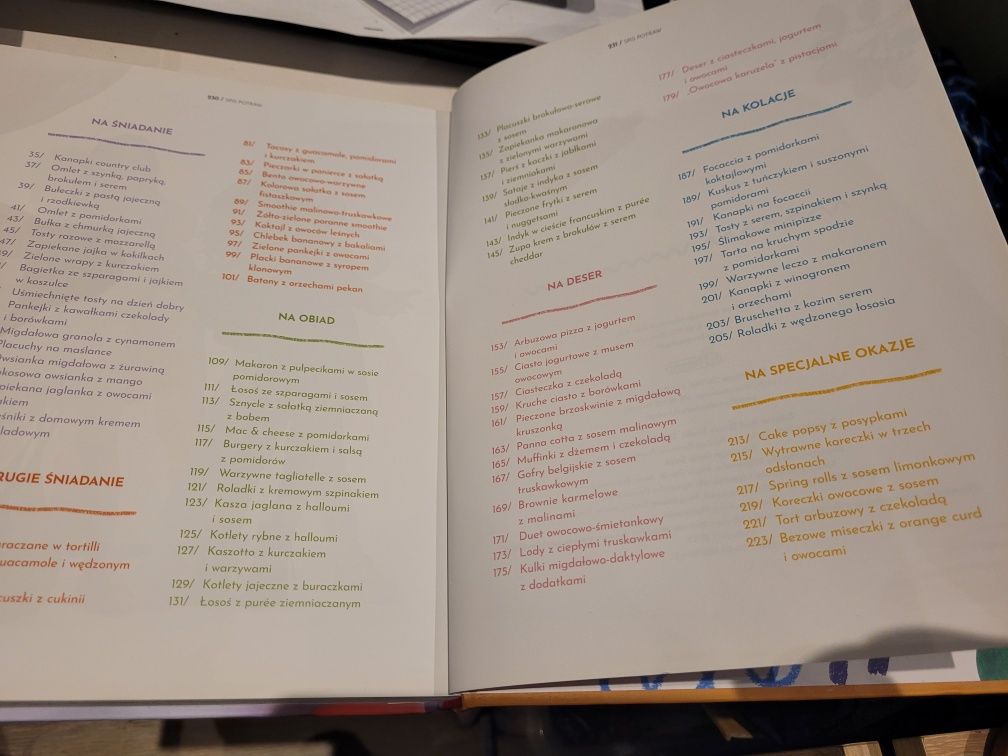 230 / SPIS POTRAW
NA ŚNIADANIE
35/ Kanapki country club
37/ Omlet z szynką, papryką,
brokułem i serem
39/ Bułeczki z pastą jajeczną
i rzodkiewką
41/ Omlet z pomidorkami
43/ Bułka z chmurką jajeczną
45/ Tosty razowe z mozzarellą
47/ Zapiekane jajka w kokilkach
Zielone wrapy z kurczakiem
Bagietka ze szparagami i jajkiem
w koszulce
Uśmiechnięte tosty na dzień dobry
Pankejki z kawałkami czekolady
i borówkami
Migdałowa granola z cynamonem
Placuchy na maślance
wsianka migdałowa z żurawiną
kosowa owsianka z mango
piekana jaglanka z owocami
kiem
śniki z domowym kremem
ladowym
RUGIE ŚNIADANIE
raczane w tortilli
uacamole i wędzonym
cuszki z cukinii
81/ Tacosy z guacamole, pomidorami
i kurczakiem
83/ Pieczarki w panierce z sałatką
85/ Bento owocowo-warzywne
87/ Kolorowa sałatka z sosem
fistaszkowym
89/ Smoothie malinowo-truskawkowe
91/ Żółto-zielone poranne smoothie
93/ Koktajl z owoców leśnych
95/ Chlebek bananowy z bakaliami
97/ Zielone pankejki z owocami
99/ Placki bananowe z syropem
klonowym
101/ Batony z orzechami pekan
NA OBIAD
109/ Makaron z pulpecikami w sosie
pomidorowym
111/ Łosoś ze szparagami i sosem
113/ Sznycle z sałatką ziemniaczaną
z bobem
115/ Mac & cheese z pomidorkami
117/ Burgery z kurczakiem i salsą
z pomidorów
119/ Warzywne tagliatelle z sosem
121/ Roladki z kremowym szpinakiem
123/ Kasza jaglana z halloumi
i sosem
125/ Kotlety rybne z halloumi
127/ Kaszotto z kurczakiem
i warzywami
129/ Kotlety jajeczne z buraczkami
131/ Łosoś z purée ziemniaczanym
231 / SPIS POTRAW
133/ Placuszki brokułowo-serowe
z sosem
135/ Zapiekanka makaronowa
z zielonymi warzywami
137/ Piers z kaczki z jabłkami
i ziemniakami
139/ Sataje z indyka z sosem
słodko-kwaśnym
141/ Pieczone frytki z serem
i nuggetsami
143/ Indyk w cieście francuskim z purée
145/ Zupa krem z brokułów z serem
cheddar
NA DESER
153/ Arbuzowa pizza z jogurtem
i owocami
155/ Ciasto jogurtowe z musem
owocowym
157/ Ciasteczka z czekoladą
159/ Kruche ciasto z borówkami
161/ Pieczone brzoskwinie z migdałową
kruszonką
163/ Panna cotta z sosem malinowym
165/ Muffinki z dżemem i czekoladą
167/ Gofry belgijskie z sosem
truskawkowym
169/ Brownie karmelowe
z malinami
171/ Duet owocowo-śmietankowy
173/ Lody z ciepłymi truskawkami
175/ Kulki migdałowo-daktylowe
z dodatkami
177/ Deser z ciasteczkami, jogurtem
i owocami
179/ „Owocowa karuzela" z pistacjami
NA KOLACJĘ
187/ Focaccia z pomidorkami
koktajlowymi
189/ Kuskus z tuńczykiem i suszonymi
pomidorami
191/ Kanapki na focaccii
193/ Tosty z serem, szpinakiem i szynką
195/ Ślimakowe minipizze
197/ Tarta na kruchym spodzie
z pomidorkami
199/ Warzywne leczo z makaronem
201/ Kanapki z winogronem
i orzechami
203/ Bruschetta z kozim serem
205/ Roladki z wędzonego łososia
NA SPECJALNE OKAZJE
213/ Cake popsy z posypkami
215/ Wytrawne koreczki w trzech
odsłonach
217/ Spring rolls z sosem limonkowym
219/ Koreczki owocowe z sosem
221/ Tort arbuzowy z czekoladą
223/ Bezowe miseczki z orange curd
i owocami